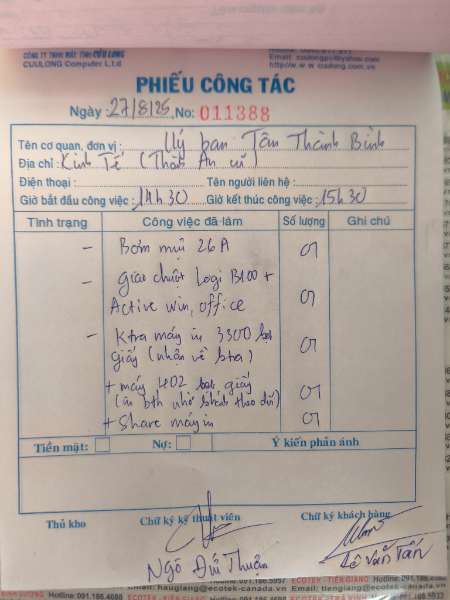 CÔNG TY TNHH MÁY TÍNH CỬU LONG
CUULONG Computer L.t.d
Email: cuulongpc@yahoo.com
http://w w w cuulong.com.vn
PHIẾU CÔNG TÁC
Ngày : 27/8/25 No: 011388
Tên cơ quan, đơn vị : Uỷ ban Tân Thành Bình
Địa chỉ : Kinh Tế (Thành An cũ)
Điện thoại : Tên người liên hệ :
Giờ bắt đầu công việc : 14h30 Giờ kết thúc công việc : 15h30
Tình trạng Công việc đã làm Số lượng Ghi chú
- Bơm mũ 26A 01
- Giao chuột Logi B100 +
Active win, office 01
- Ktra máy in 3300 kẹt
giấy (nhận về ktra) 01
+ máy 402 kẹt giấy
(in bth nhờ khách theo dõi) 01
+ Share máy in 01
Tiền mặt: Nợ: Ý kiến phản ánh
Thủ kho Chữ ký kỹ thuật viên Chữ ký khách hàng
Ngô Đức Thuân
Lê Văn Tấn
ECOTEK - TIỀN GIANG Hotline: 091.186
Email: haugiang@ecotek-canada.vn Email: tiengiang@ecotek-canada.vn